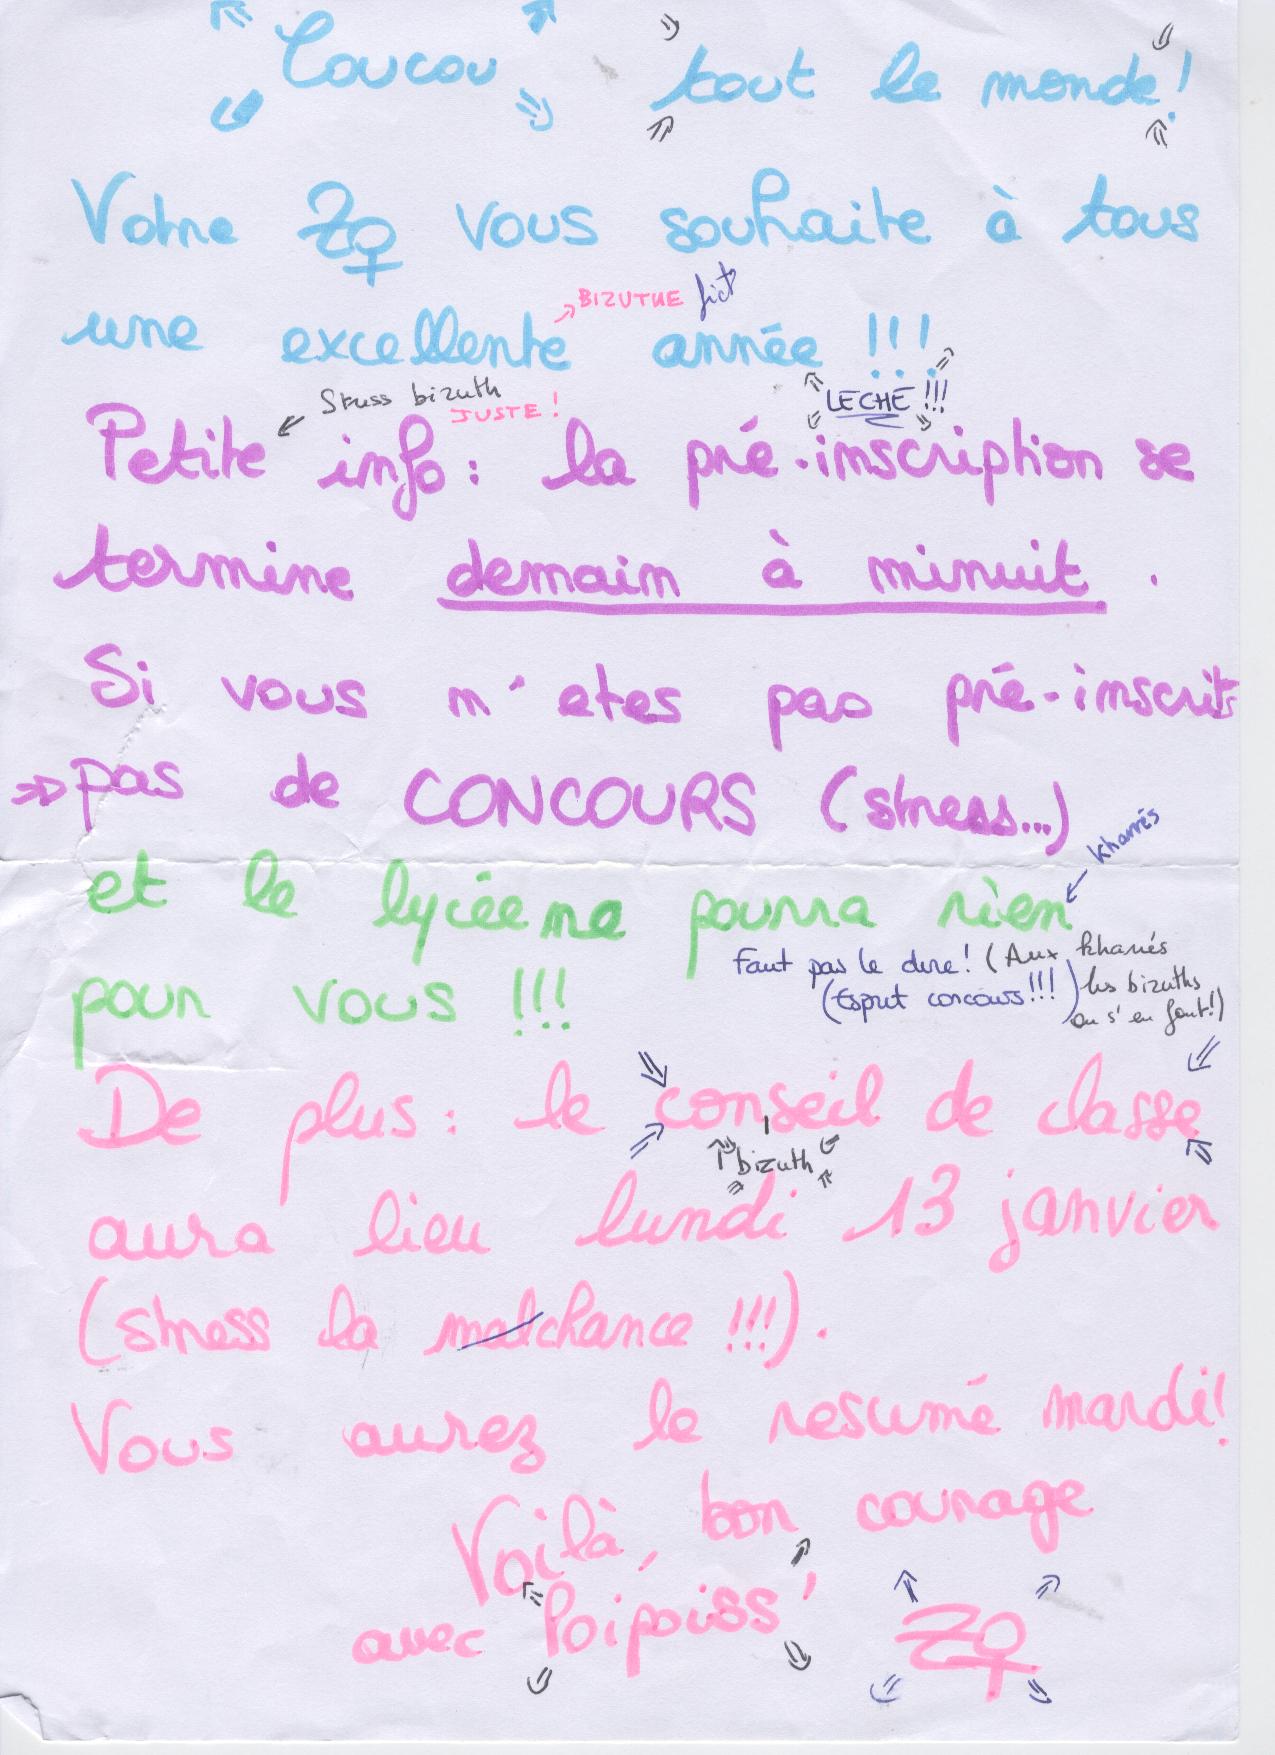 Coucou tout le monde!
Votre Z♀ vous souhaite à tous
BIZUTHE fict
une excellente année !!!
Struss bizuth
JUSTE !
LECHÉ !!!
Petite info : la pré-inscription se
termine demain à minuit .
Si vous n'etes pas pré-inscrits
⇒ pas de CONCOURS (stress...)
kharrés
et le lycée ne pourra rien
Faut pas le dire! (Aux kharrés
pour vous !!!
(Esprit concours!!!) les bizuths
on s'en fout!)
De plus : le conseil de classe
bizuth
aura lieu lundi 13 janvier
(stress la malchance !!!).
Vous aurez le resumé mardi!
Voilà, bon courage
avec Poipoiss' Z♀